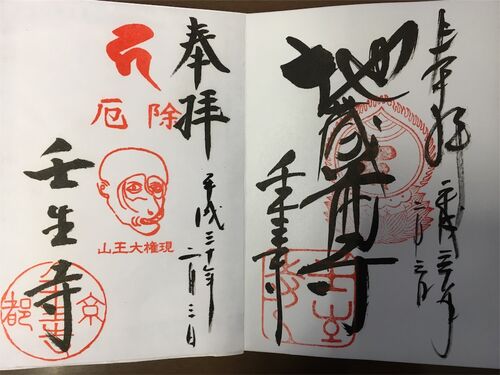 奉拝
平成三十年
二月三日
地蔵尊
壬生寺
奉拝
平成三十年
二月三日
厄除
山王大権現
壬生寺
京都